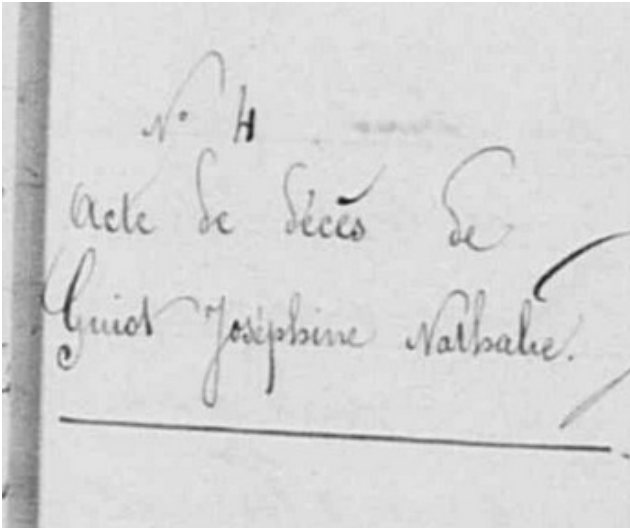 N° 4
Acte de décès de
Guiot Joséphine Nathalie.